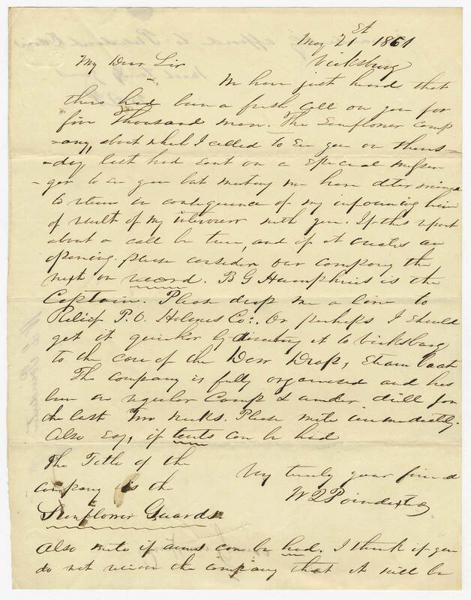 May 21st 1861
Vicksburg
My Dear Sir
We have just heard that
there had been a fresh call on you for
five Thousand men. The Sunflower Comp
-any, about which I called to See you on Thurs-
-day last had sent on a Special messen-
-ger to see you but meeting me have determined
to return in consequence of my informing him
of result of my interview with you. If this report
about a call be true, and if it creates an
opening, please consider our company the
next on record. B G Humphries is the
Captain. Please drop me a line to
P.O. Holmes Co:. Or perhaps I should
get it quicker by directing it to Vicksburg
to the care of the Dew Drop, Steam boat
The company is fully organised and has
been in regular Camp & under drill for
the last two weeks. Please write immediately.
Also say, if tents can be had
The Title of the
company is the
Sunflower Guards
Very truly your friend
W Q Poindexter
Also write if arms can be had. I think if you
do not receive the company that it will be